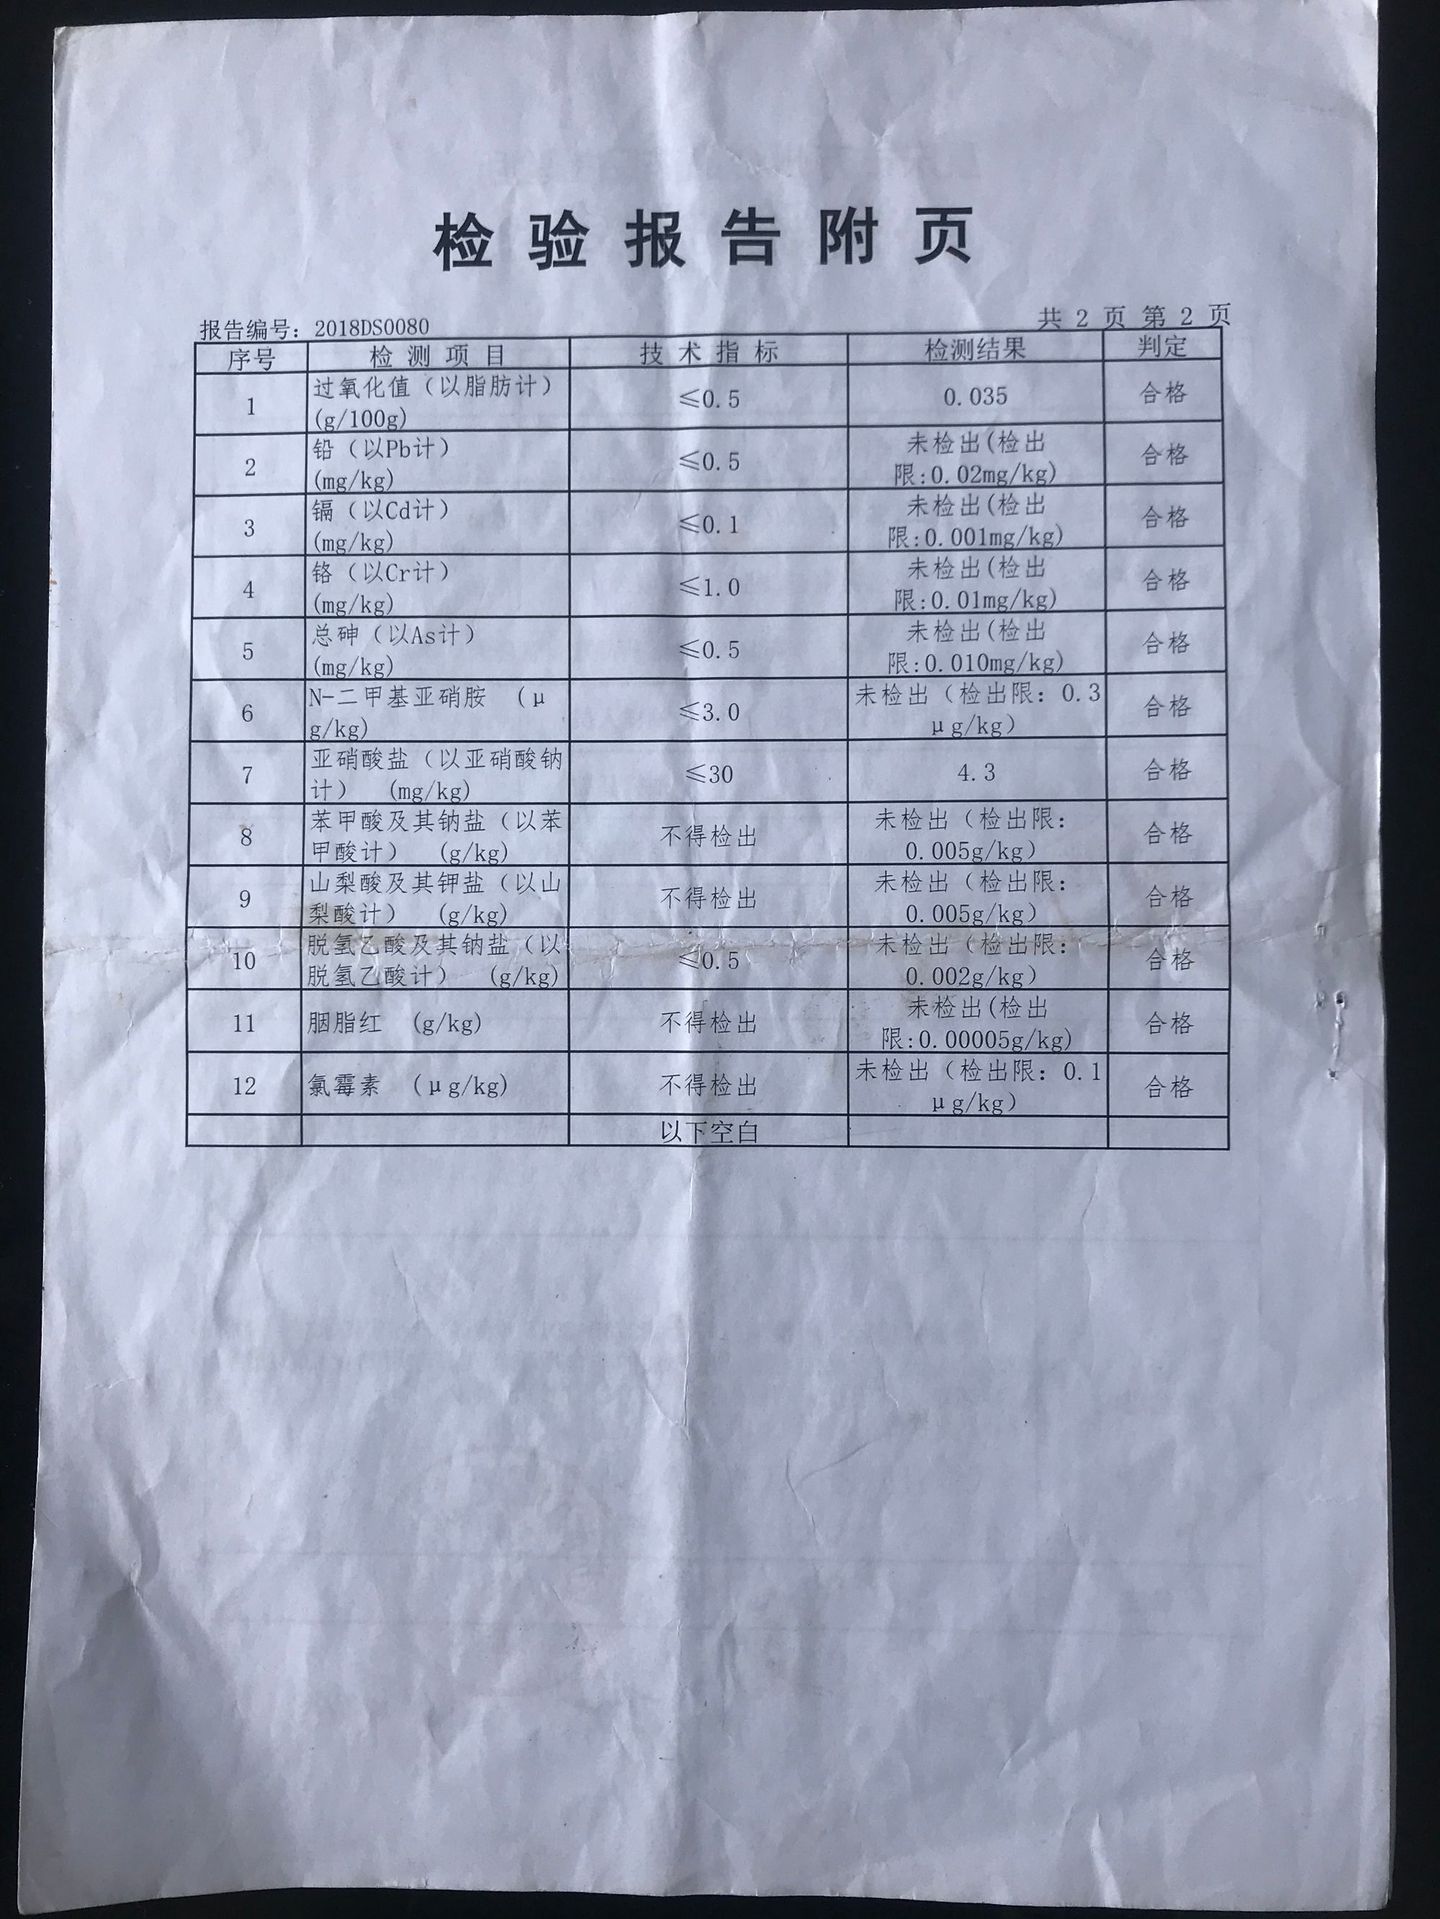 检验报告附页
报告编号：2018DS0080
共 2 页 第 2 页
序号 检 测 项 目 技 术 指 标 检测结果 判定
1 过氧化值（以脂肪计）(g/100g) ≤0.5 0.035 合格
2 铅（以Pb计）(mg/kg) ≤0.5 未检出(检出限:0.02mg/kg) 合格
3 镉（以Cd计）(mg/kg) ≤0.1 未检出(检出限:0.001mg/kg) 合格
4 铬（以Cr计）(mg/kg) ≤1.0 未检出(检出限:0.01mg/kg) 合格
5 总砷（以As计）(mg/kg) ≤0.5 未检出(检出限:0.010mg/kg) 合格
6 N-二甲基亚硝胺 （μg/kg) ≤3.0 未检出（检出限：0.3μg/kg） 合格
7 亚硝酸盐（以亚硝酸钠计） (mg/kg) ≤30 4.3 合格
8 苯甲酸及其钠盐（以苯甲酸计） (g/kg) 不得检出 未检出（检出限：0.005g/kg） 合格
9 山梨酸及其钾盐（以山梨酸计） (g/kg) 不得检出 未检出（检出限：0.005g/kg） 合格
10 脱氢乙酸及其钠盐（以脱氢乙酸计） (g/kg) ≤0.5 未检出（检出限：0.002g/kg） 合格
11 胭脂红 (g/kg) 不得检出 未检出(检出限:0.00005g/kg) 合格
12 氯霉素 （μg/kg) 不得检出 未检出（检出限：0.1μg/kg） 合格
以下空白